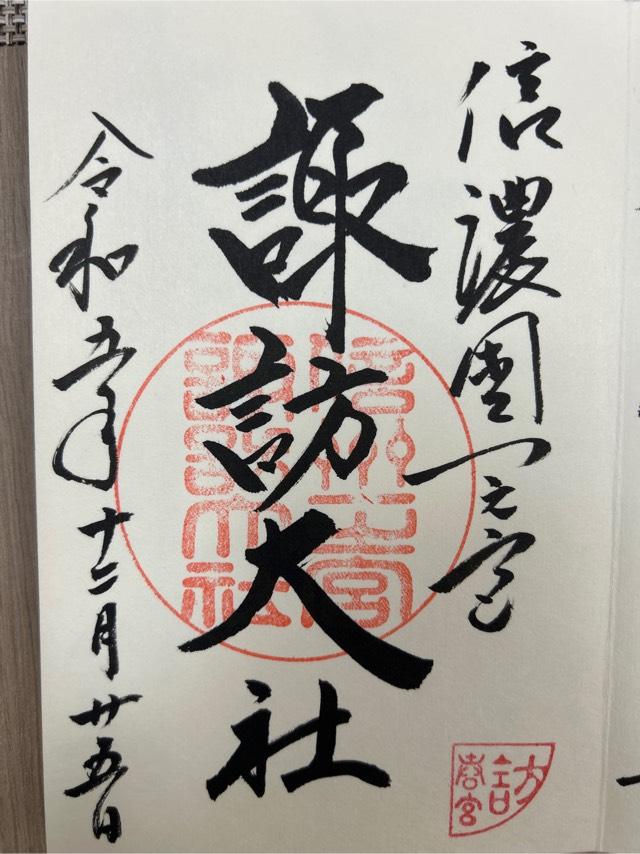 信濃國一之宮
諏訪大社
令和五年十二月廿五日
諏訪大社
訪
春宮